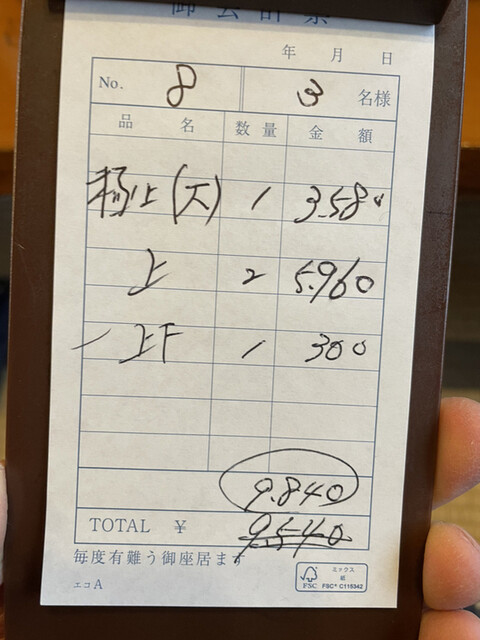 御会計票
年 月 日
No. 8 3 名様
品 名 数 量 金 額
極上(大) 1 3.580
上 2 5.960
上下 1 300
9.840
TOTAL ¥ 9.540
毎度有難う御座居ます
エコA
ミックス
紙
FSC FSC® C115342